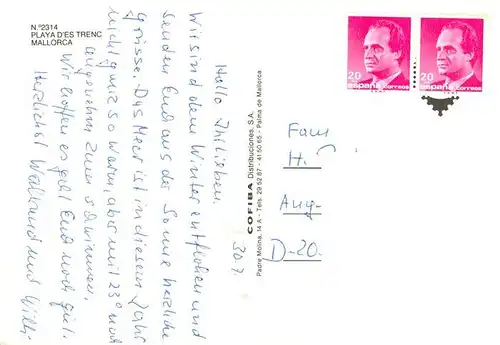 N.º2314
PLAYA D'ES TRENC
MALLORCA
30.7.
Hallo Ihr Lieben.
Wir sind dem Winter entflohen und
senden Euch aus der Sonne herzliche
Grüsse. Das Meer ist in diesem Jahr
nicht ganz so warm, aber mit 23° noch
angenehm zum schwimmen.
Wir hoffen es geht Euch noch gut.
Herzlichst Waltraud und Willi
COFIBA Distribuciones, S.A.
Padre Molina, 14 A - Tels. 29 52 67 - 41 50 65 - Palma de Mallorca
20
España Correos
20
España Correos
Fam
H.
Aug-
D-20.